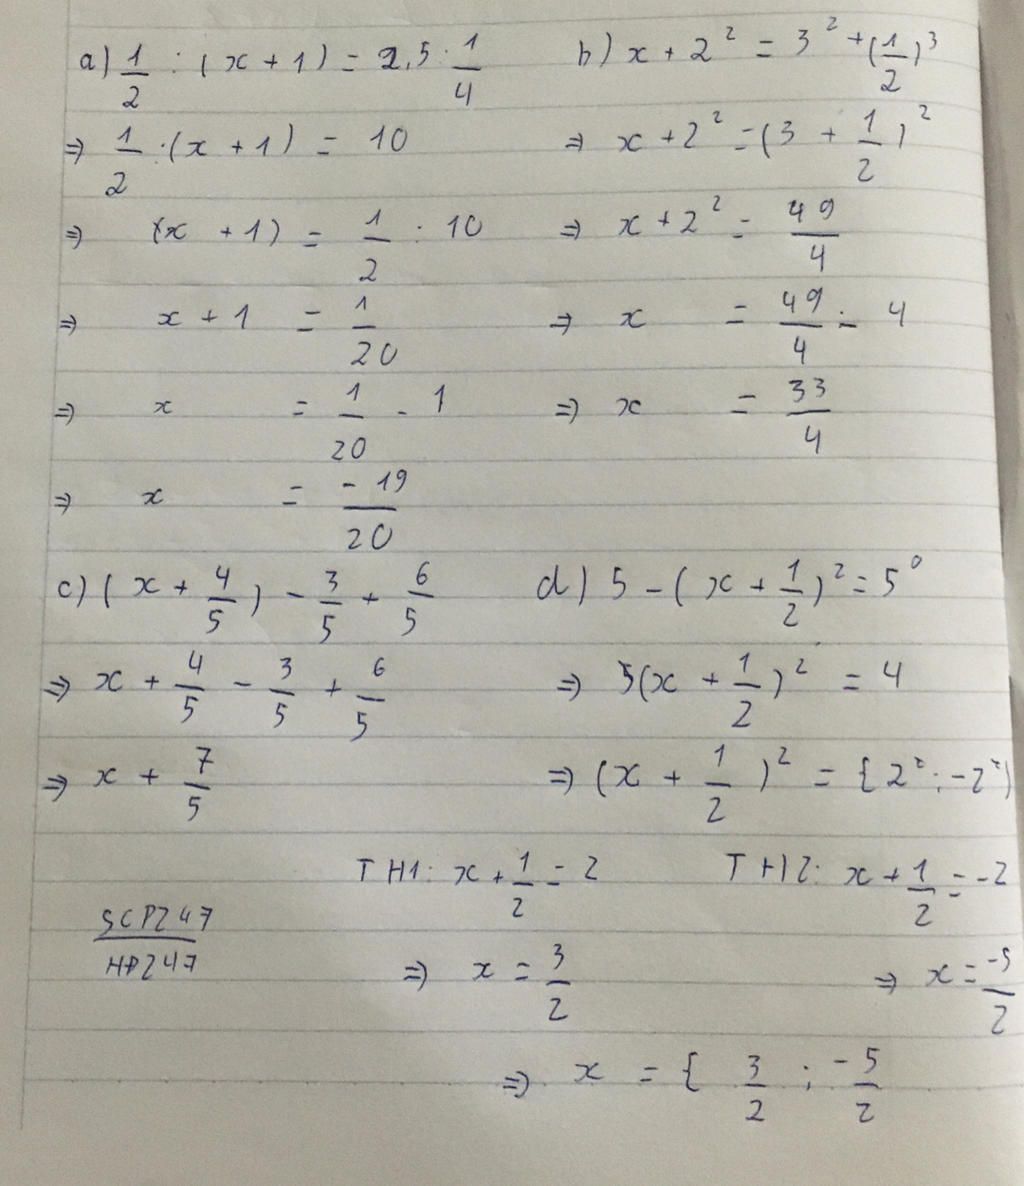 a) 1/2 : (x + 1) = 2,5 : 1/4
⇒ 1/2 : (x + 1) = 10
⇒ (x + 1) = 1/2 : 10
⇒ x + 1 = 1/20
⇒ x = 1/20 - 1
⇒ x = -19/20
b) x + 2² = 3² + (1/2)³
⇒ x + 2² = (3 + 1/2)²
⇒ x + 2² = 49/4
⇒ x = 49/4 - 4
⇒ x = 33/4
c) (x + 4/5) - 3/5 + 6/5
⇒ x + 4/5 - 3/5 + 6/5
⇒ x + 7/5
d) 5 - (x + 1/2)² = 5⁰
⇒ 5(x + 1/2)² = 4
⇒ (x + 1/2)² = {2² ; -2²)
TH1: x + 1/2 = 2
⇒ x = 3/2
TH2: x + 1/2 = -2
⇒ x = -5/2
⇒ x = { 3/2 ; -5/2
SCPZ47
HPZ47